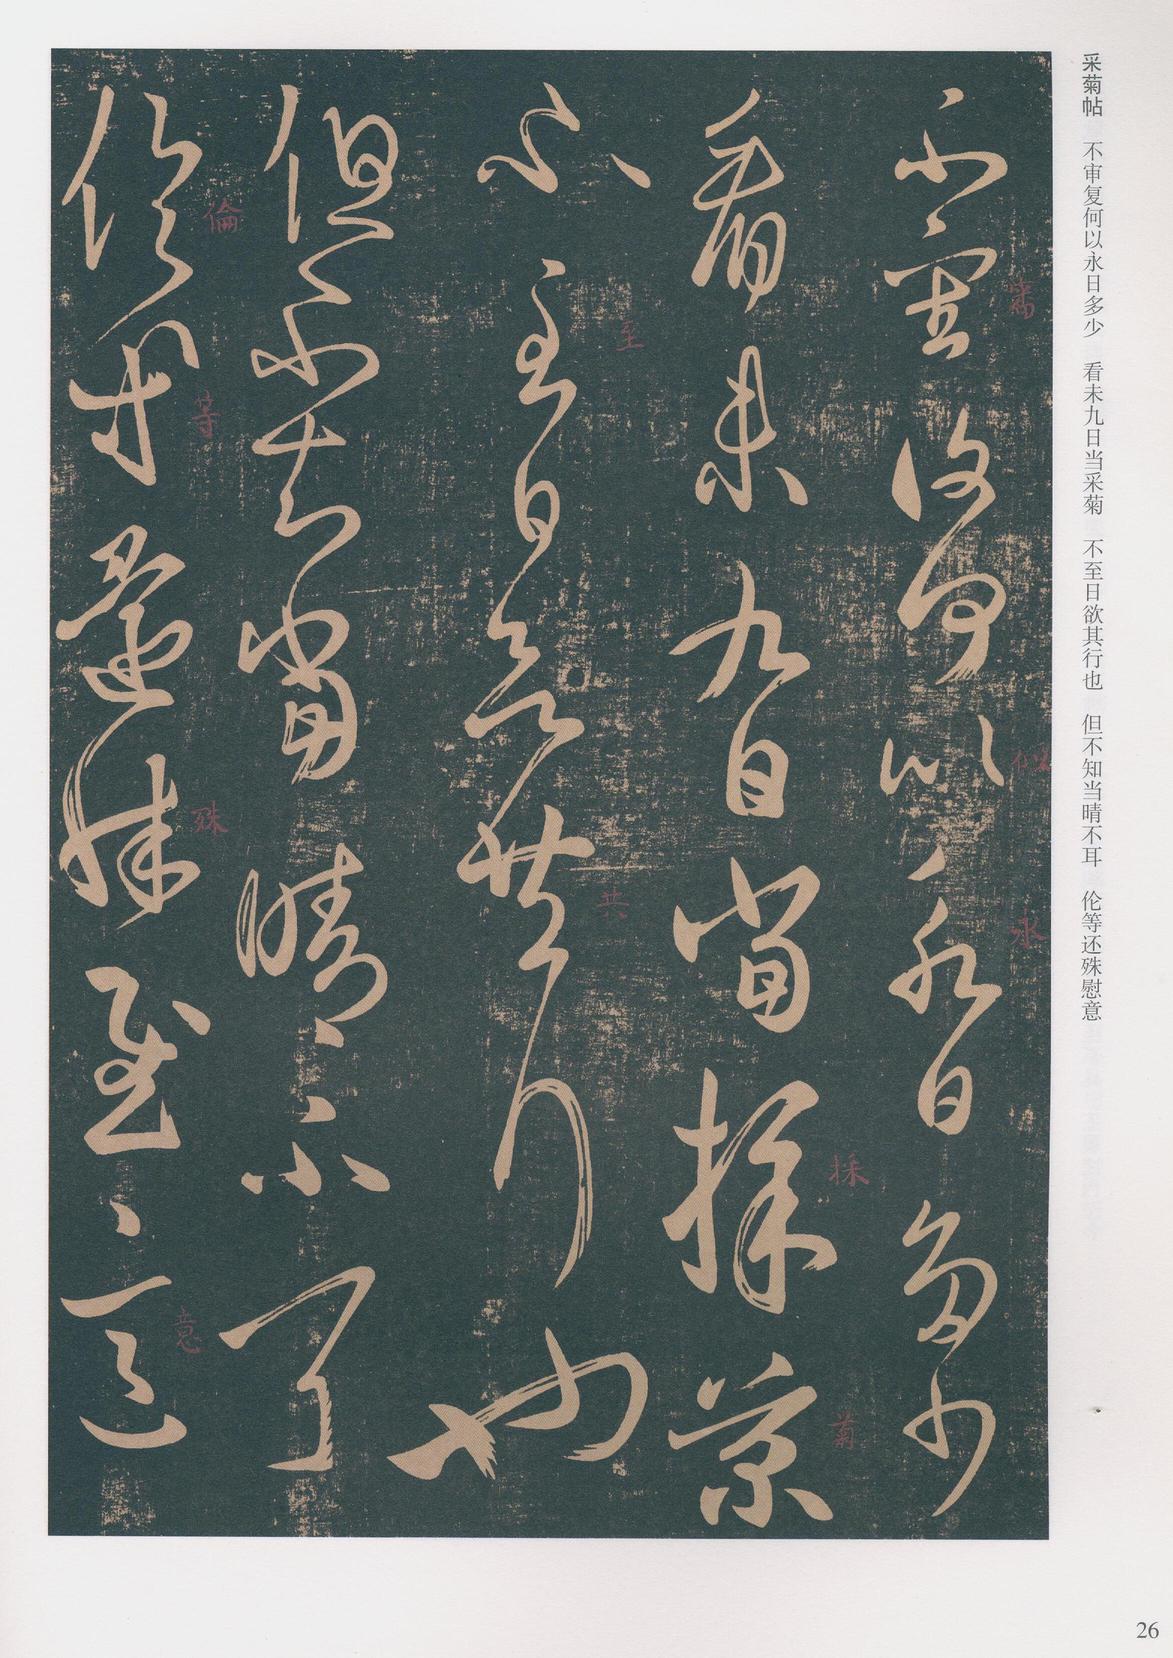 采菊帖 不审复何以永日多少 看未九日当采菊 不至日欲其行也 但不知当晴不耳 伦等还殊慰意
不審復何以永日多少
永
看未九日當採菊
採
菊
不至日欲共行也
至
共
但不知當晴不耳
倫等還殊慰意
倫
等
殊
意
26